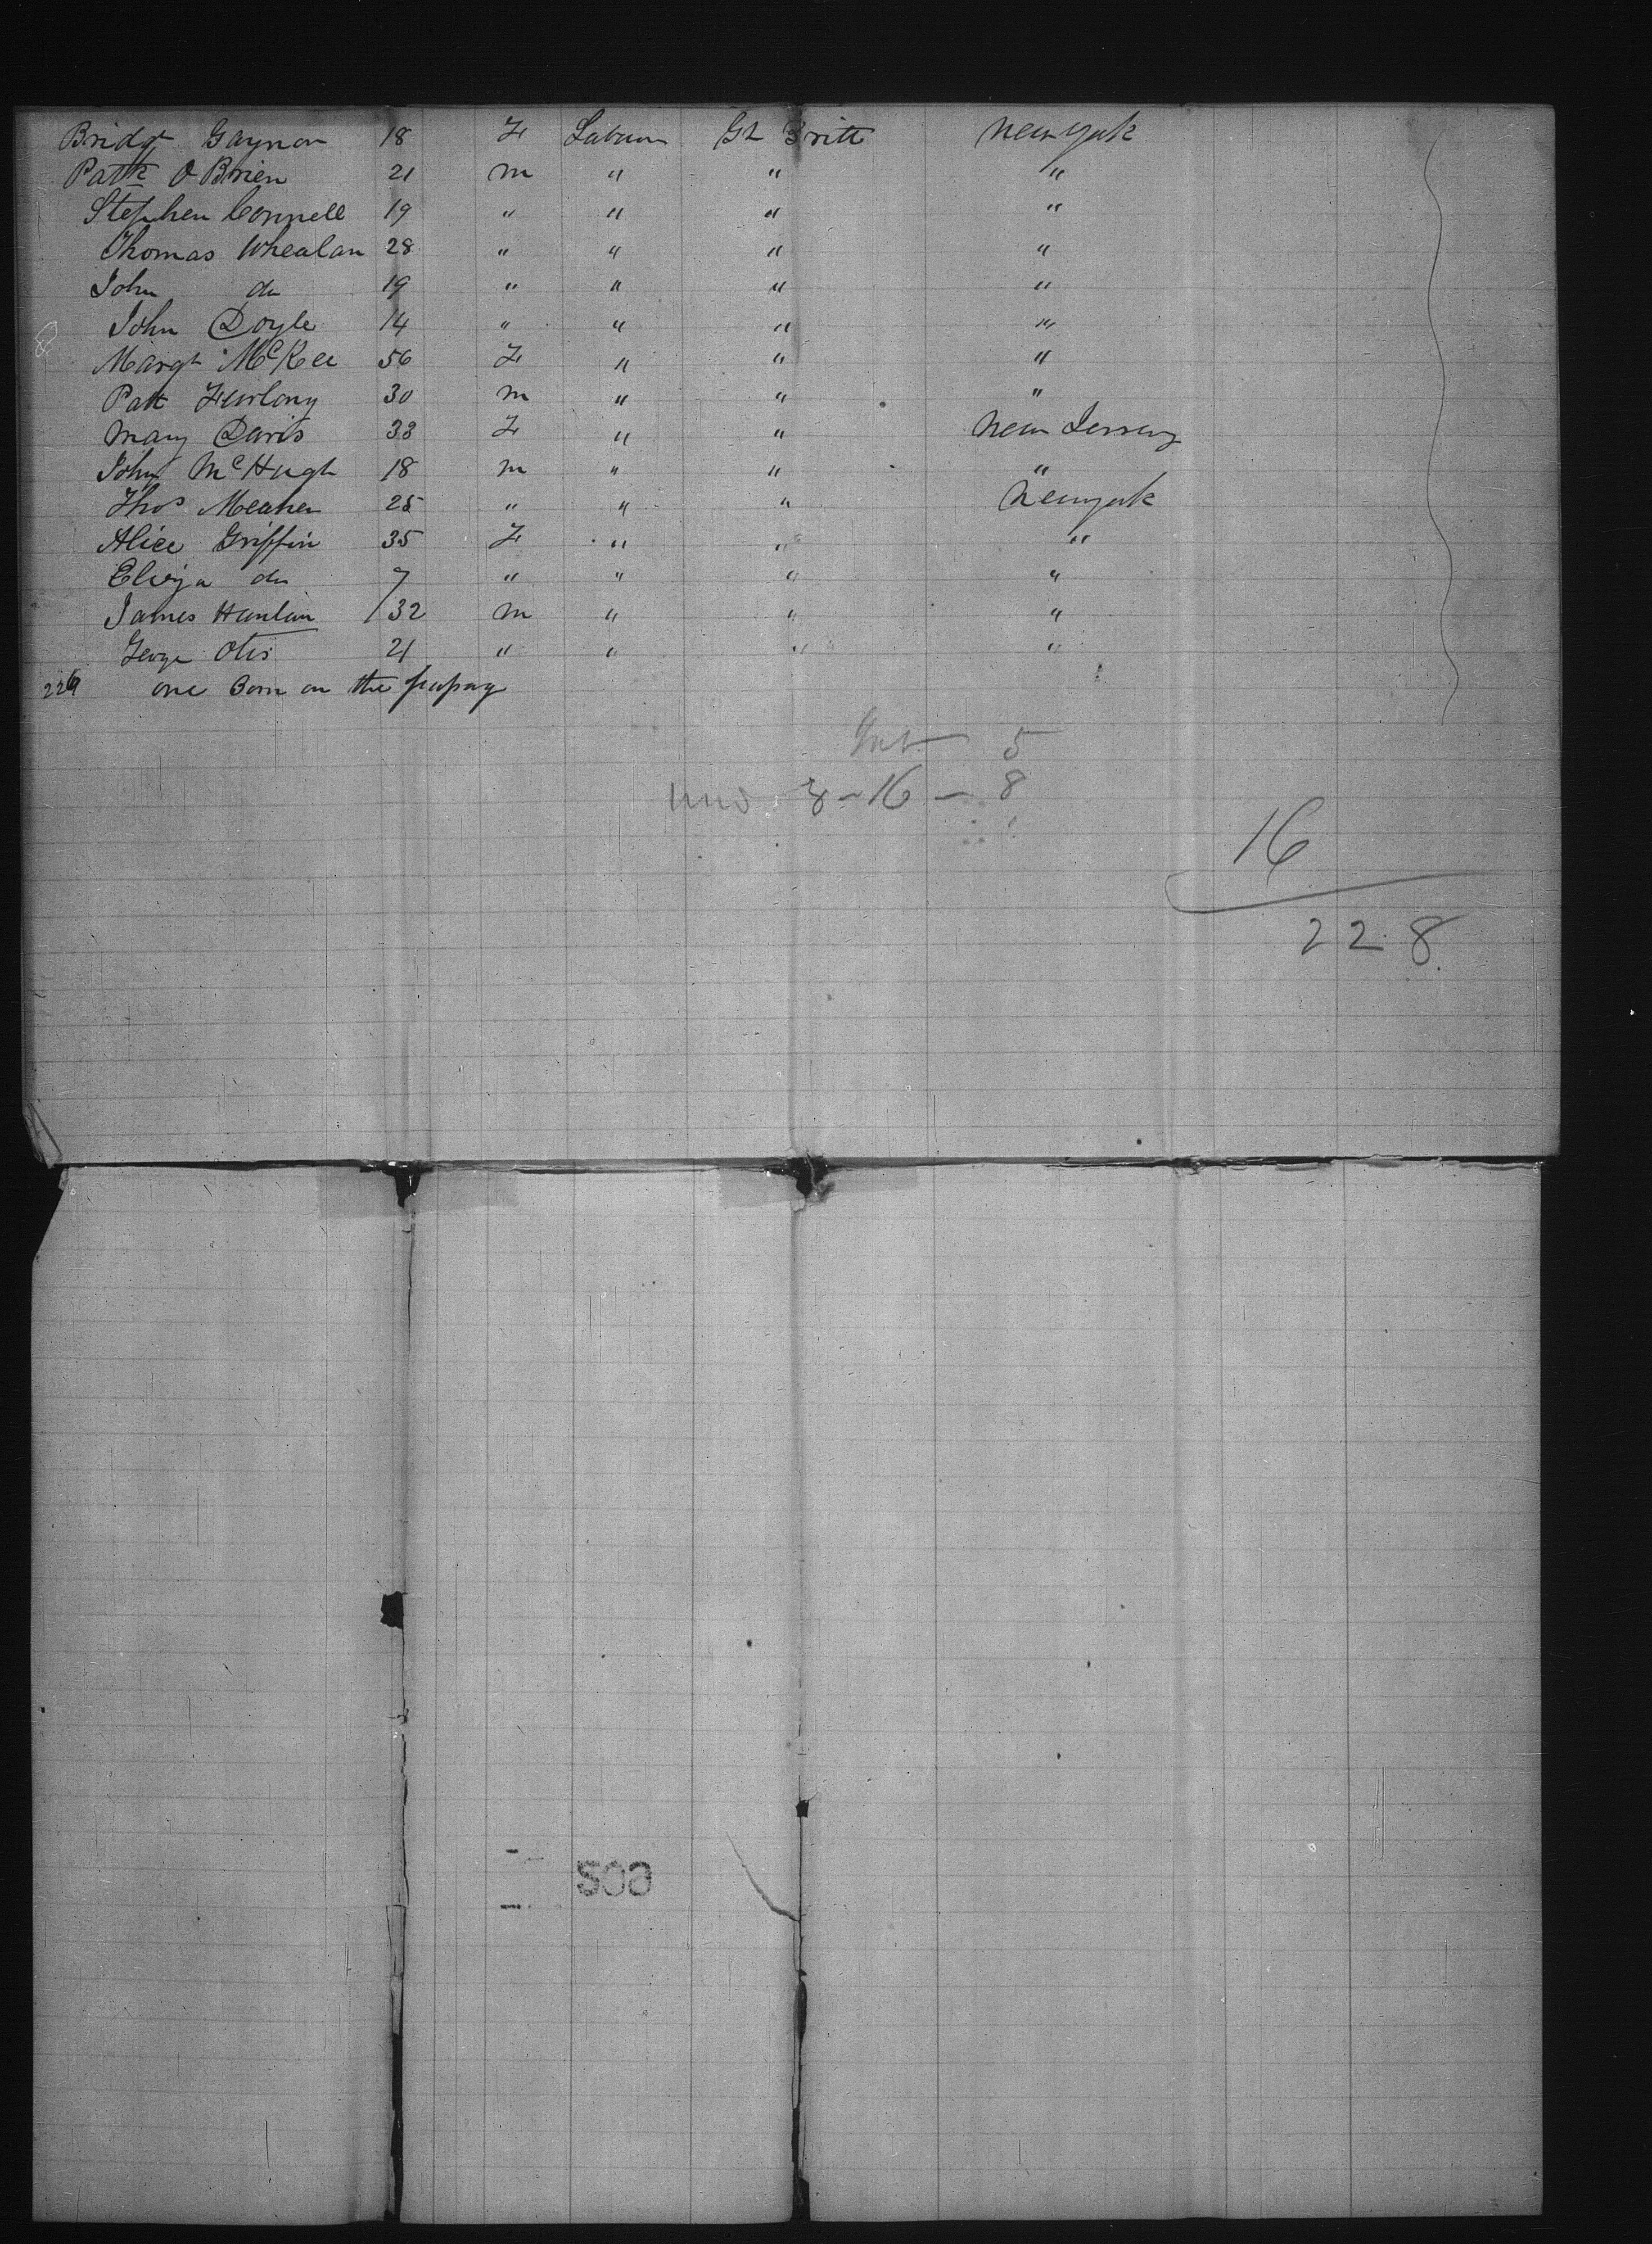 Bridgt Gaynon 18 F Labour Gt Britt New York
Pattk O Brien 21 m " " "
Stephen Connell 19 " " " "
Thomas Whealan 28 " " " "
John do 19 " " " "
John Doyle 14 " " " "
Margt McKee 56 F " " "
Patt Furlong 30 m " " "
Mary Davis 33 F " " New Jersey
John McHugh 18 m " " "
Thos Meaher 25 " " " New York
Alice Griffin 35 F " " "
Eliza do 7 " " " "
James Hanlan 32 m " " "
George Otis 21 " " " "
226 one Born on the passag
5
8 - 16 - 8
16
228
509